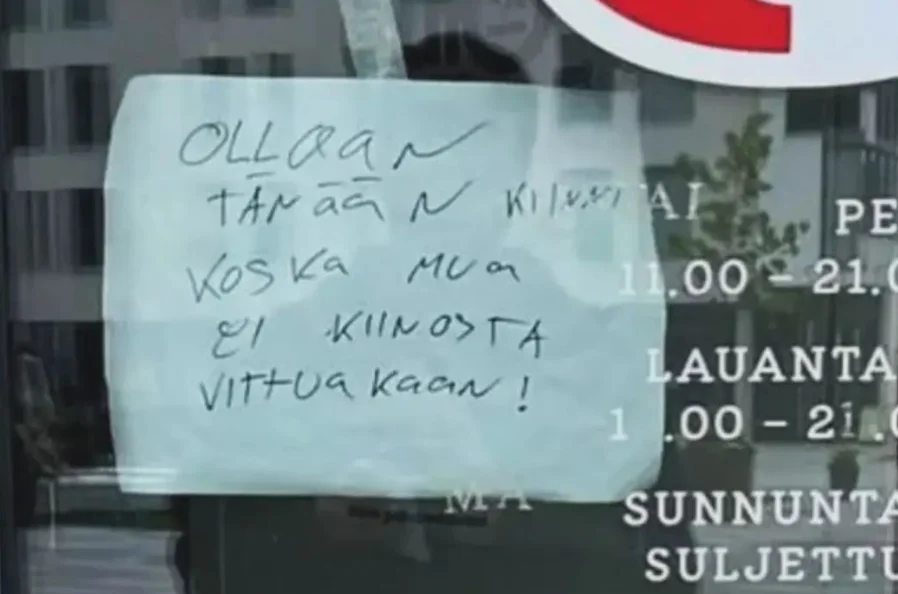 OLLaaN
TÄNääN KIINNI
KOSKa MUa
EI KIINOSTA
VITTUaKaaN!
TAI PE
11.00 – 21.0
LAUANTA
1 .00 – 21.0
MA SUNNUNTA
SULJETTU